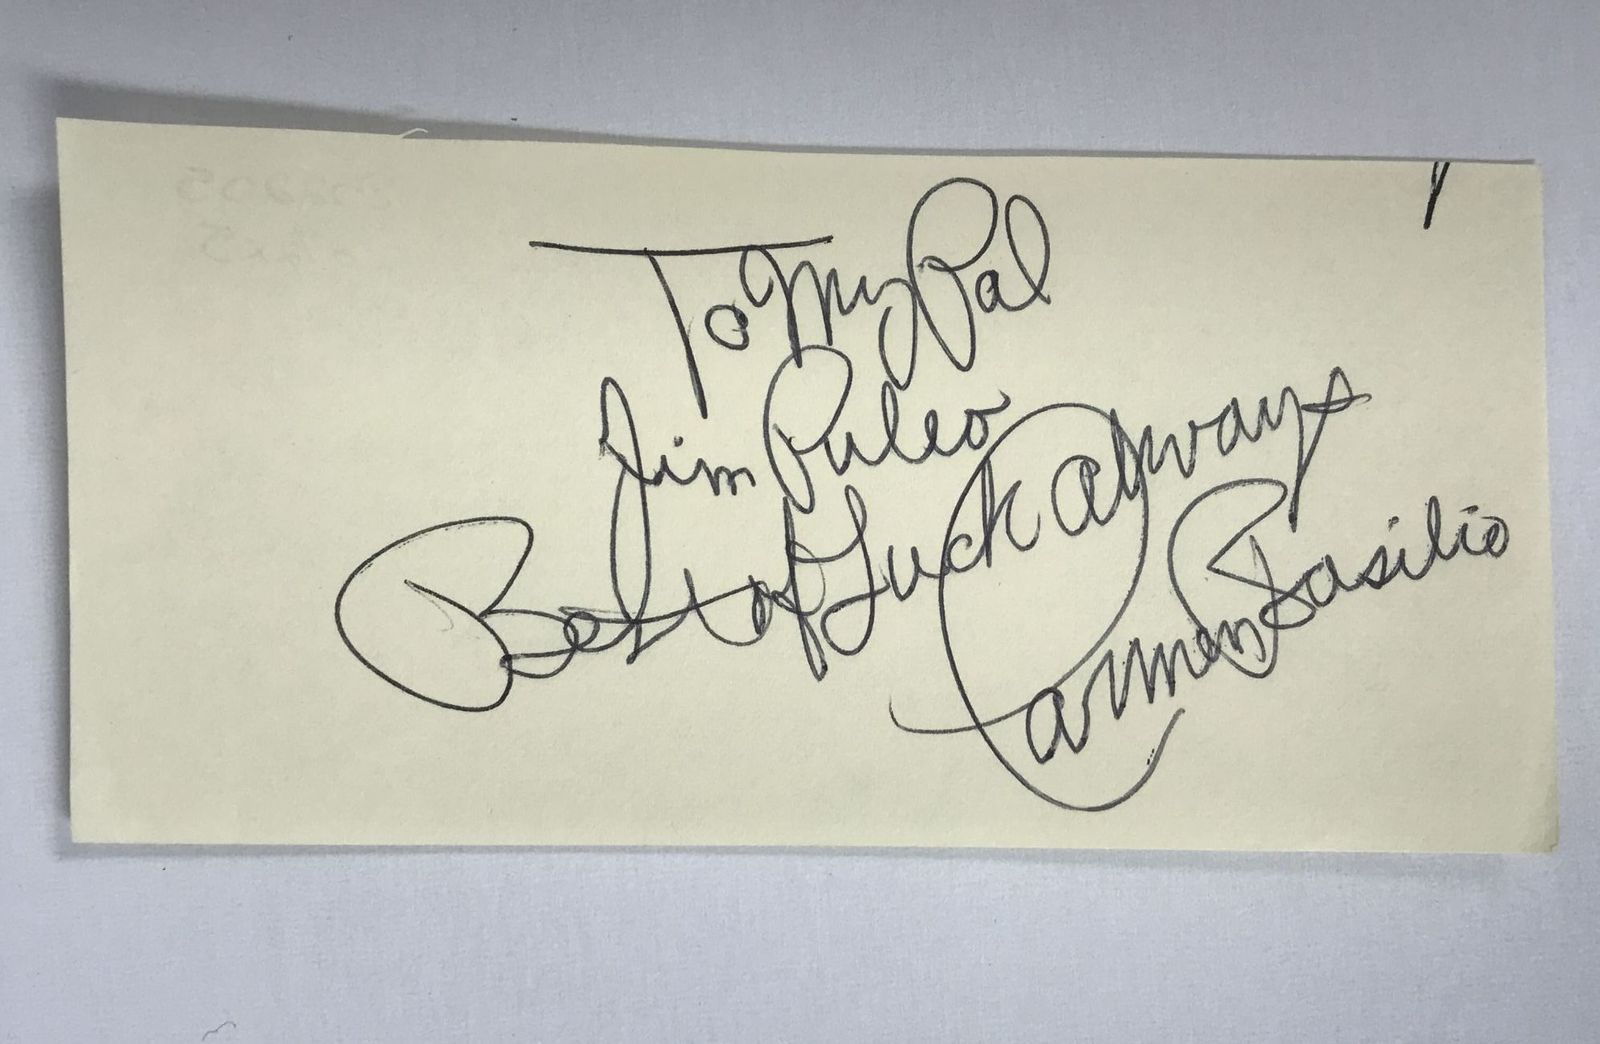 To My Pal
Jim Puleo
Best of Luck always
Carmen Basilio